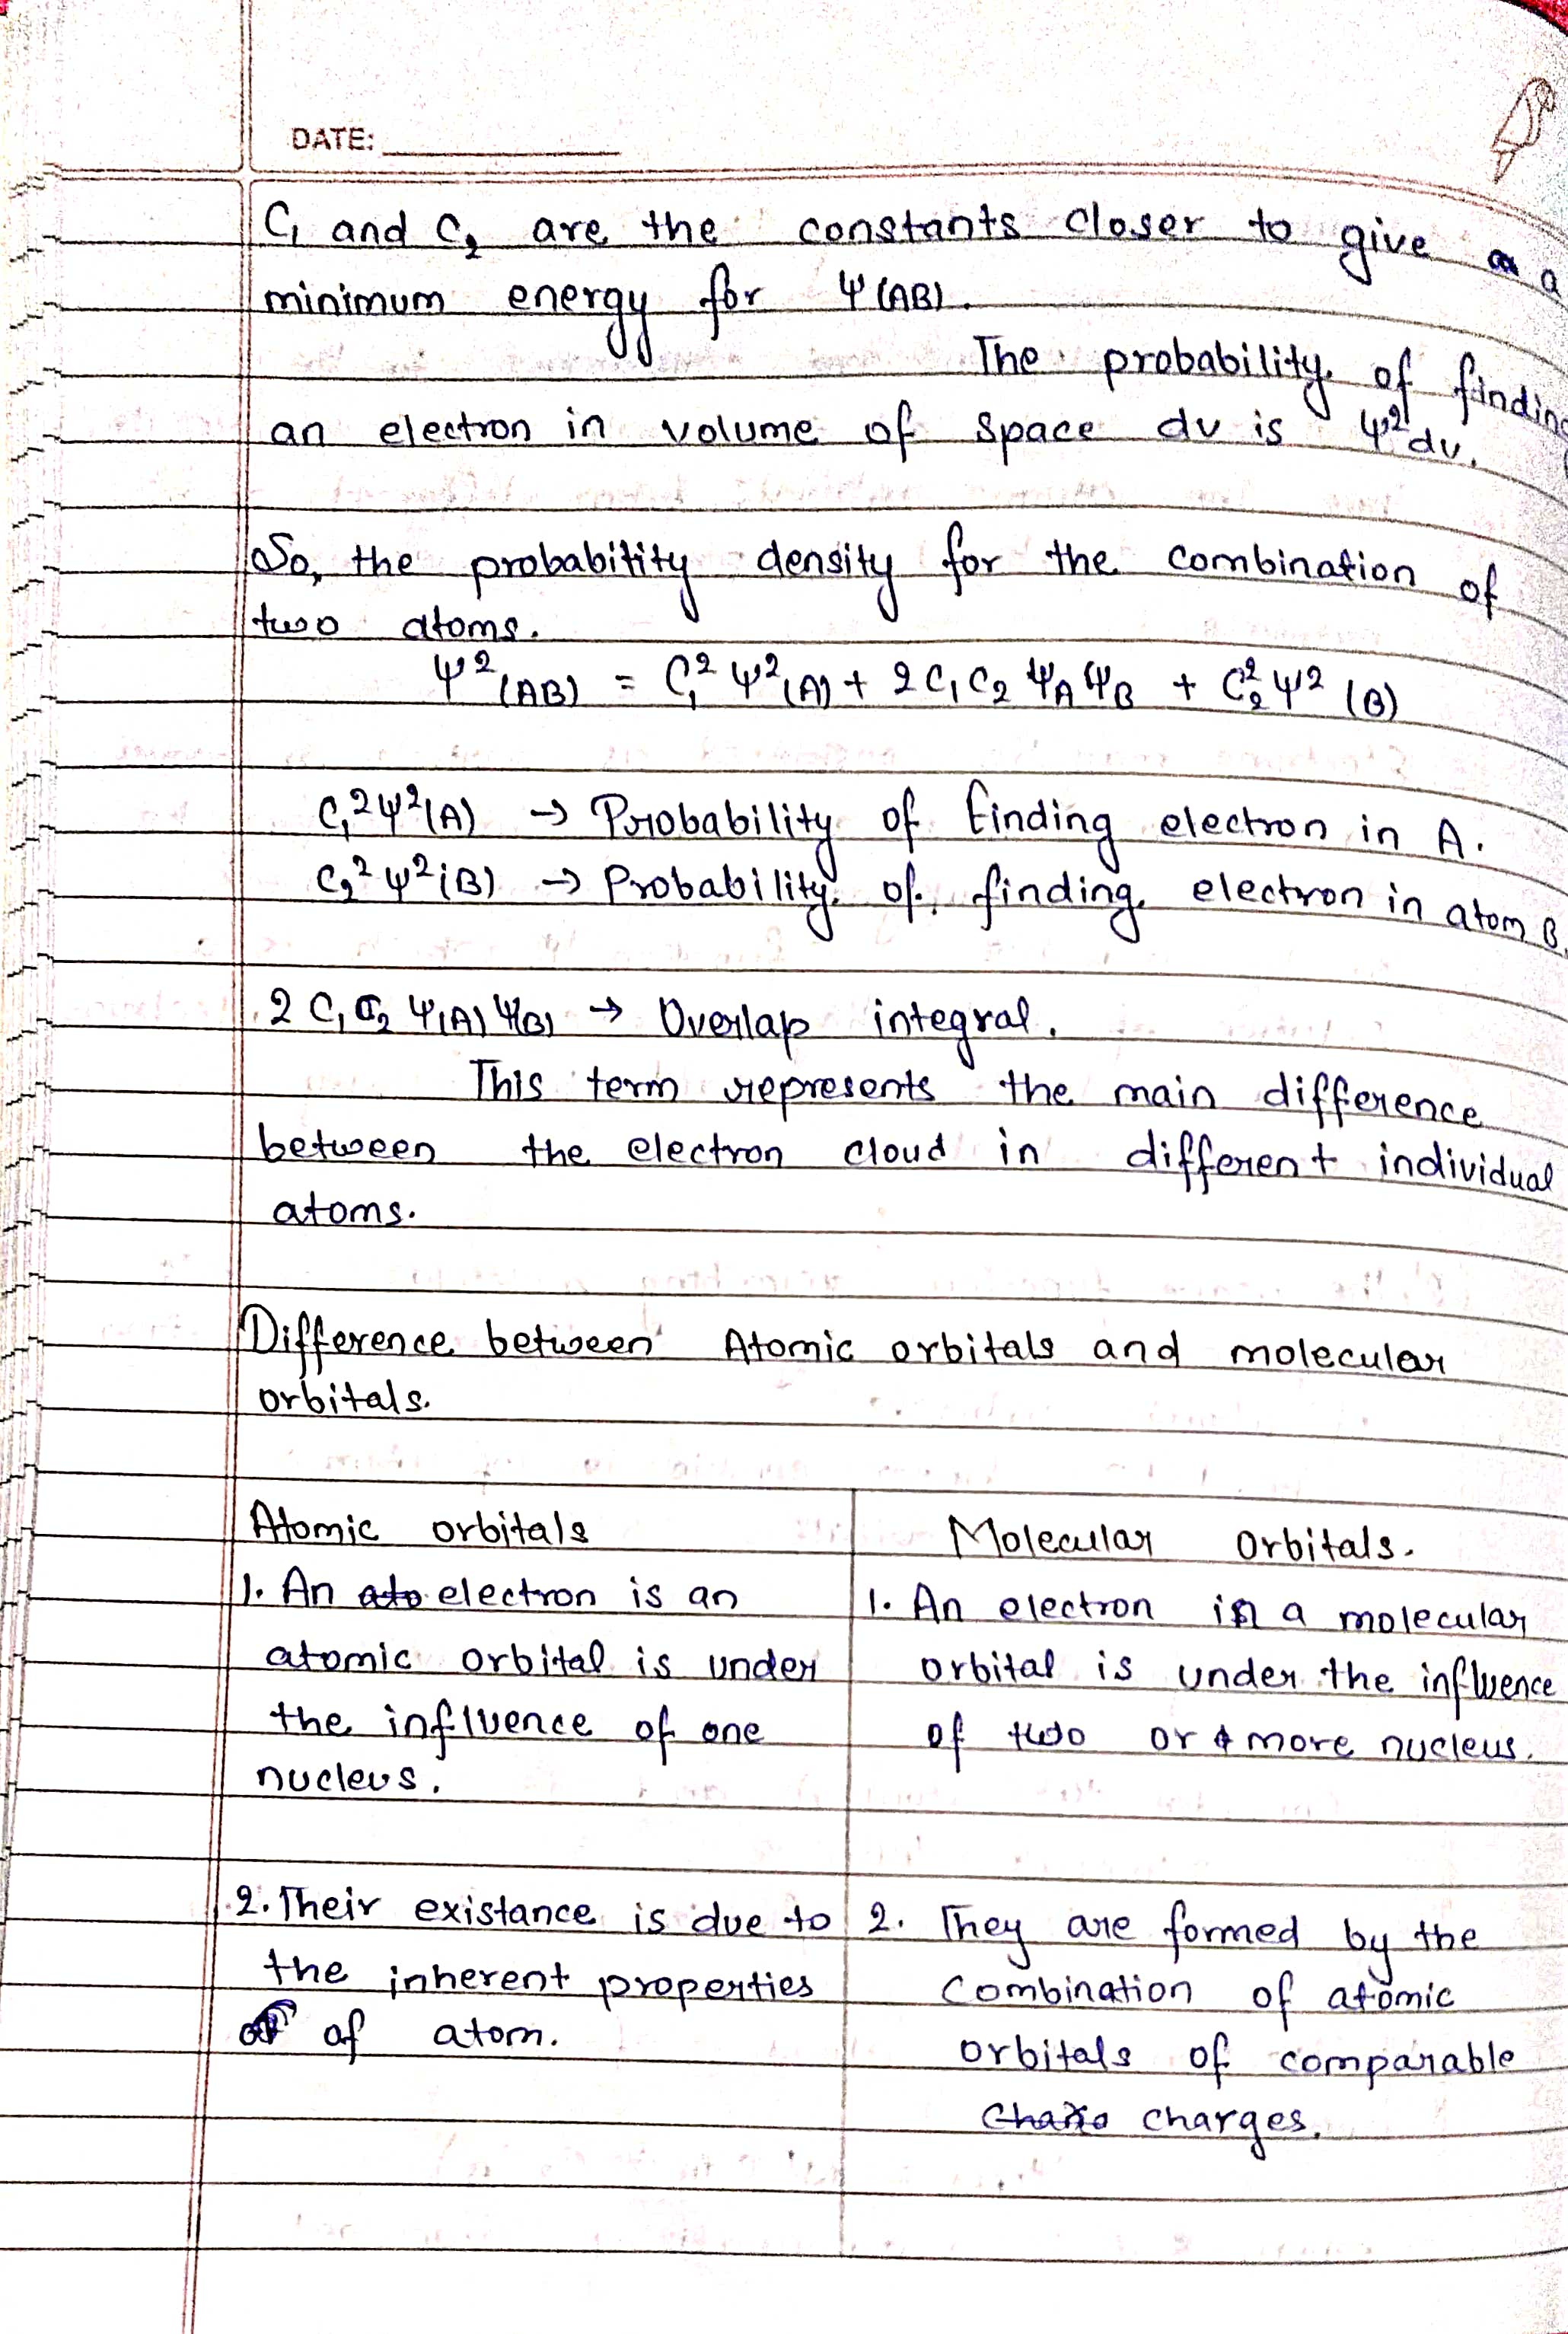 DATE:
C₁ and C₂ are the constants closer to give a
minimum energy for Ψ(AB).
The probability of finding
an electron in volume of space dv is Ψ²dv.
So, the probability density for the combination of
two atoms.
Ψ²(AB) = C₁²Ψ²(A) + 2C₁C₂ ΨA ΨB + C₂²Ψ²(B)
C₁²Ψ²(A) → Probability of finding electron in A.
C₂²Ψ²(B) → Probability of finding electron in atom B.
2 C₁C₂ Ψ(A) Ψ(B) → Overlap integral.
This term represents the main difference
between the electron cloud in different individual
atoms.
Difference between Atomic orbitals and molecular
orbitals.
Atomic orbitals
1. An ato electron is an
atomic orbital is under
the influence of one
nucleus.
2. Their existance is due to
the inherent properties
of atom.
Molecular Orbitals.
1. An electron in a molecular
orbital is under the influence
of two or more nucleus.
2. They are formed by the
Combination of atomic
orbitals of comparable
charges.